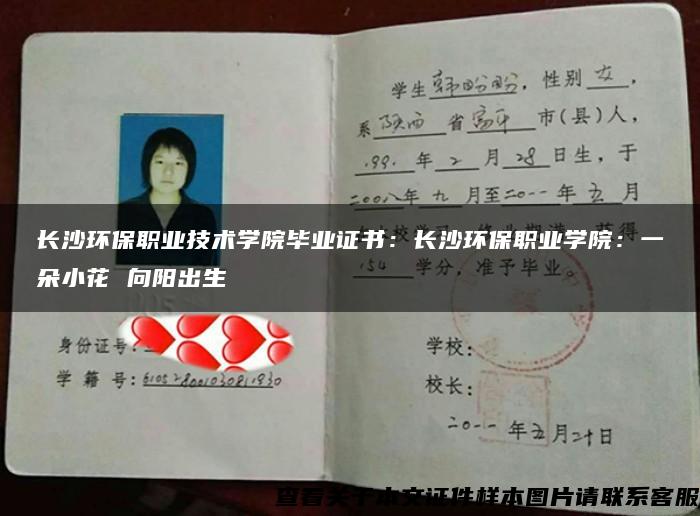 学生韩盼盼，性别女，
系陕西省富平市(县)人，
1991年2月28日生，于
二00八年九月至二0一一年五月
长沙环保职业技术学院毕业证书：长沙环保职业学院：一
朵小花 向阳出生
154学分，准予毕业。
身份证号：
学籍号：610528001030811930
学校：
校长：
二0一一年五月二十日
查看关于本文证件样本图片请联系客服